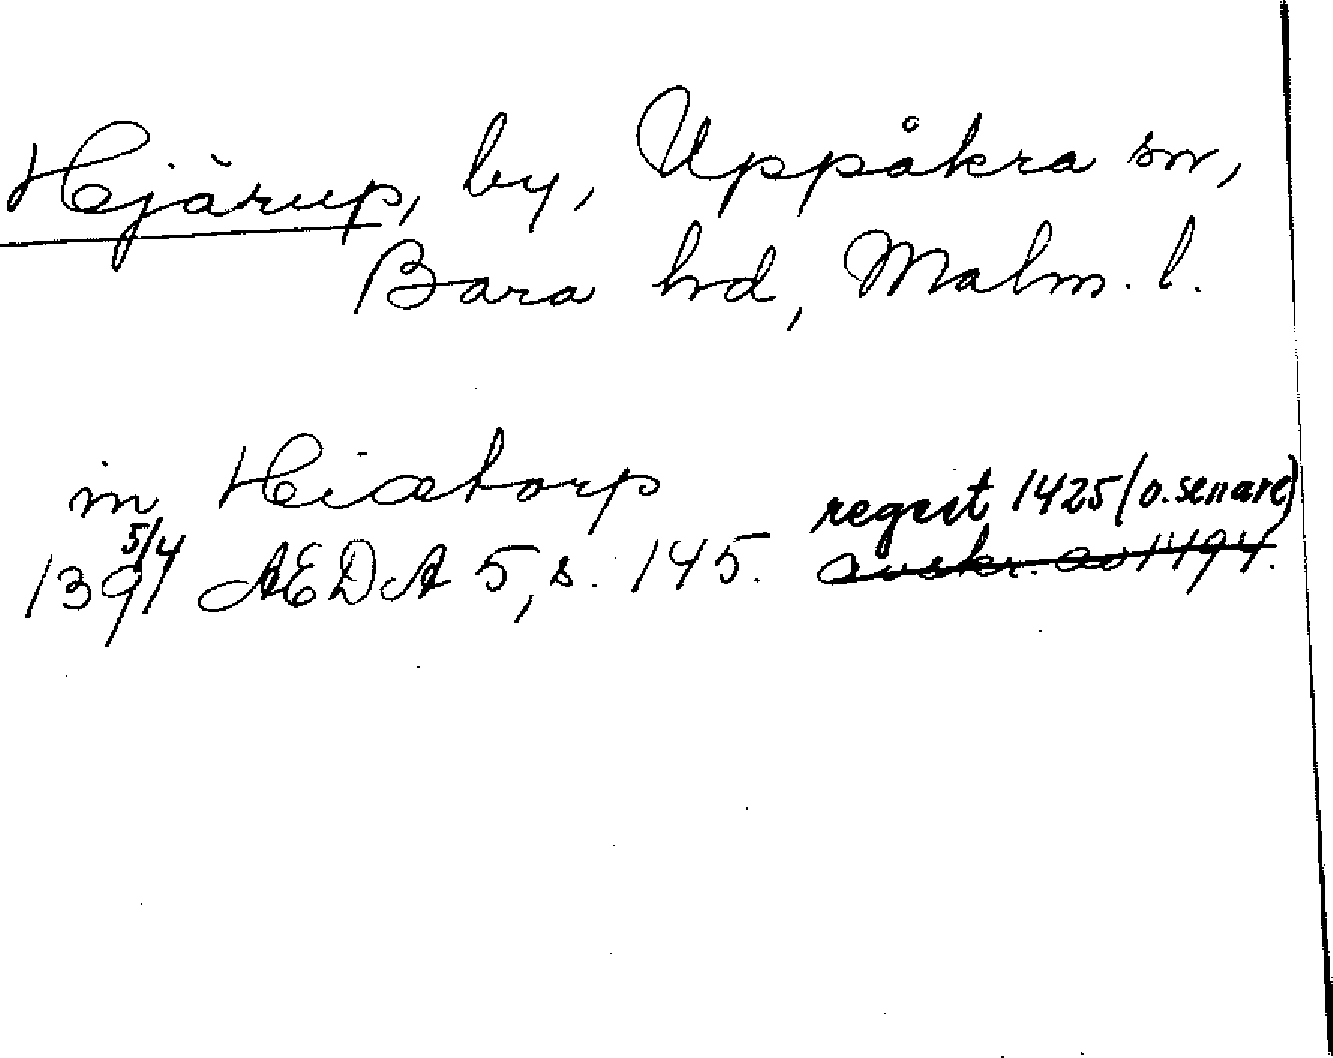 Hjärup, by, Uppåkra sn,
Bara hd, Malm. l.
in Hiætorp regest 1425 (o. senare)
1391 5/4 AEDA 5, s. 145. avskr. av 1494.